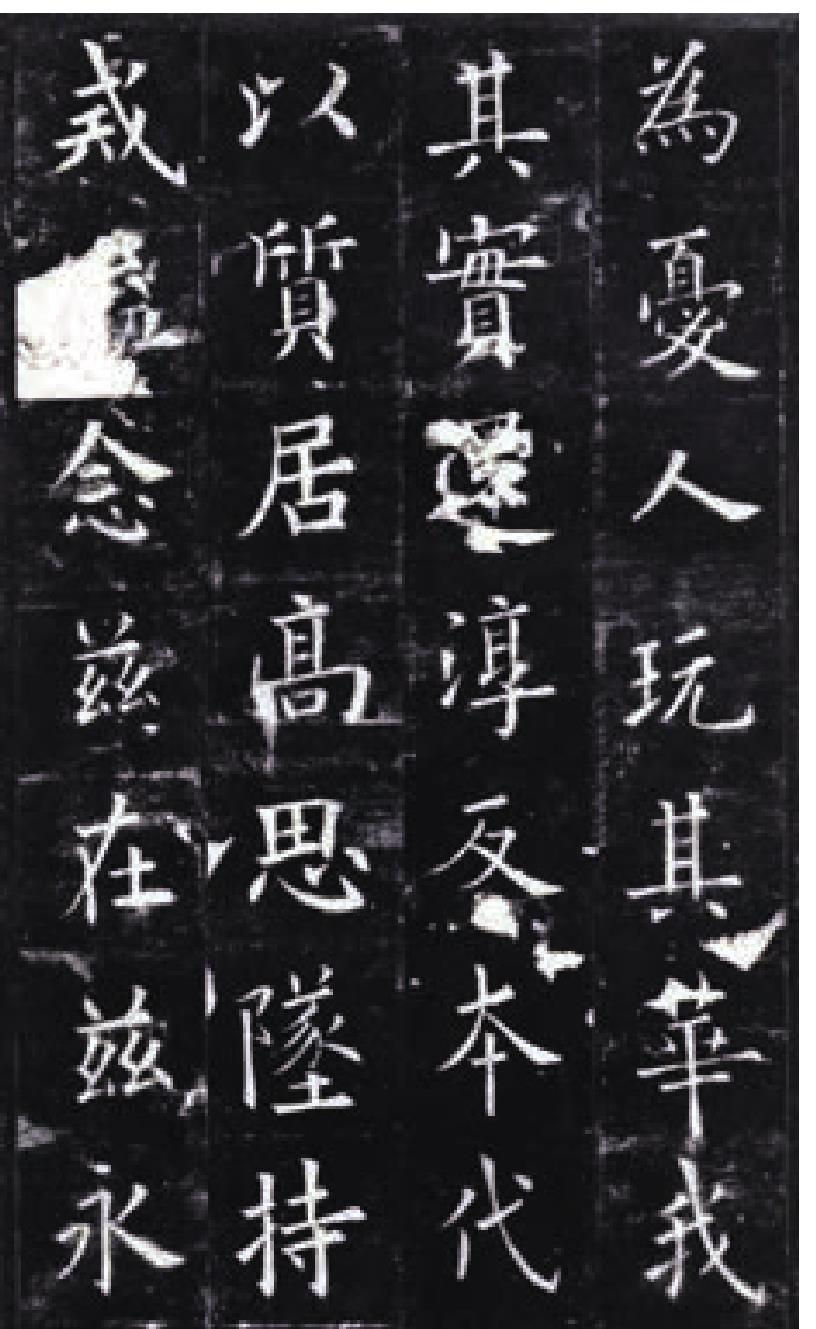 為憂人玩其華我
其實還淳反本代
以質居高思墜持
戒念茲在茲永